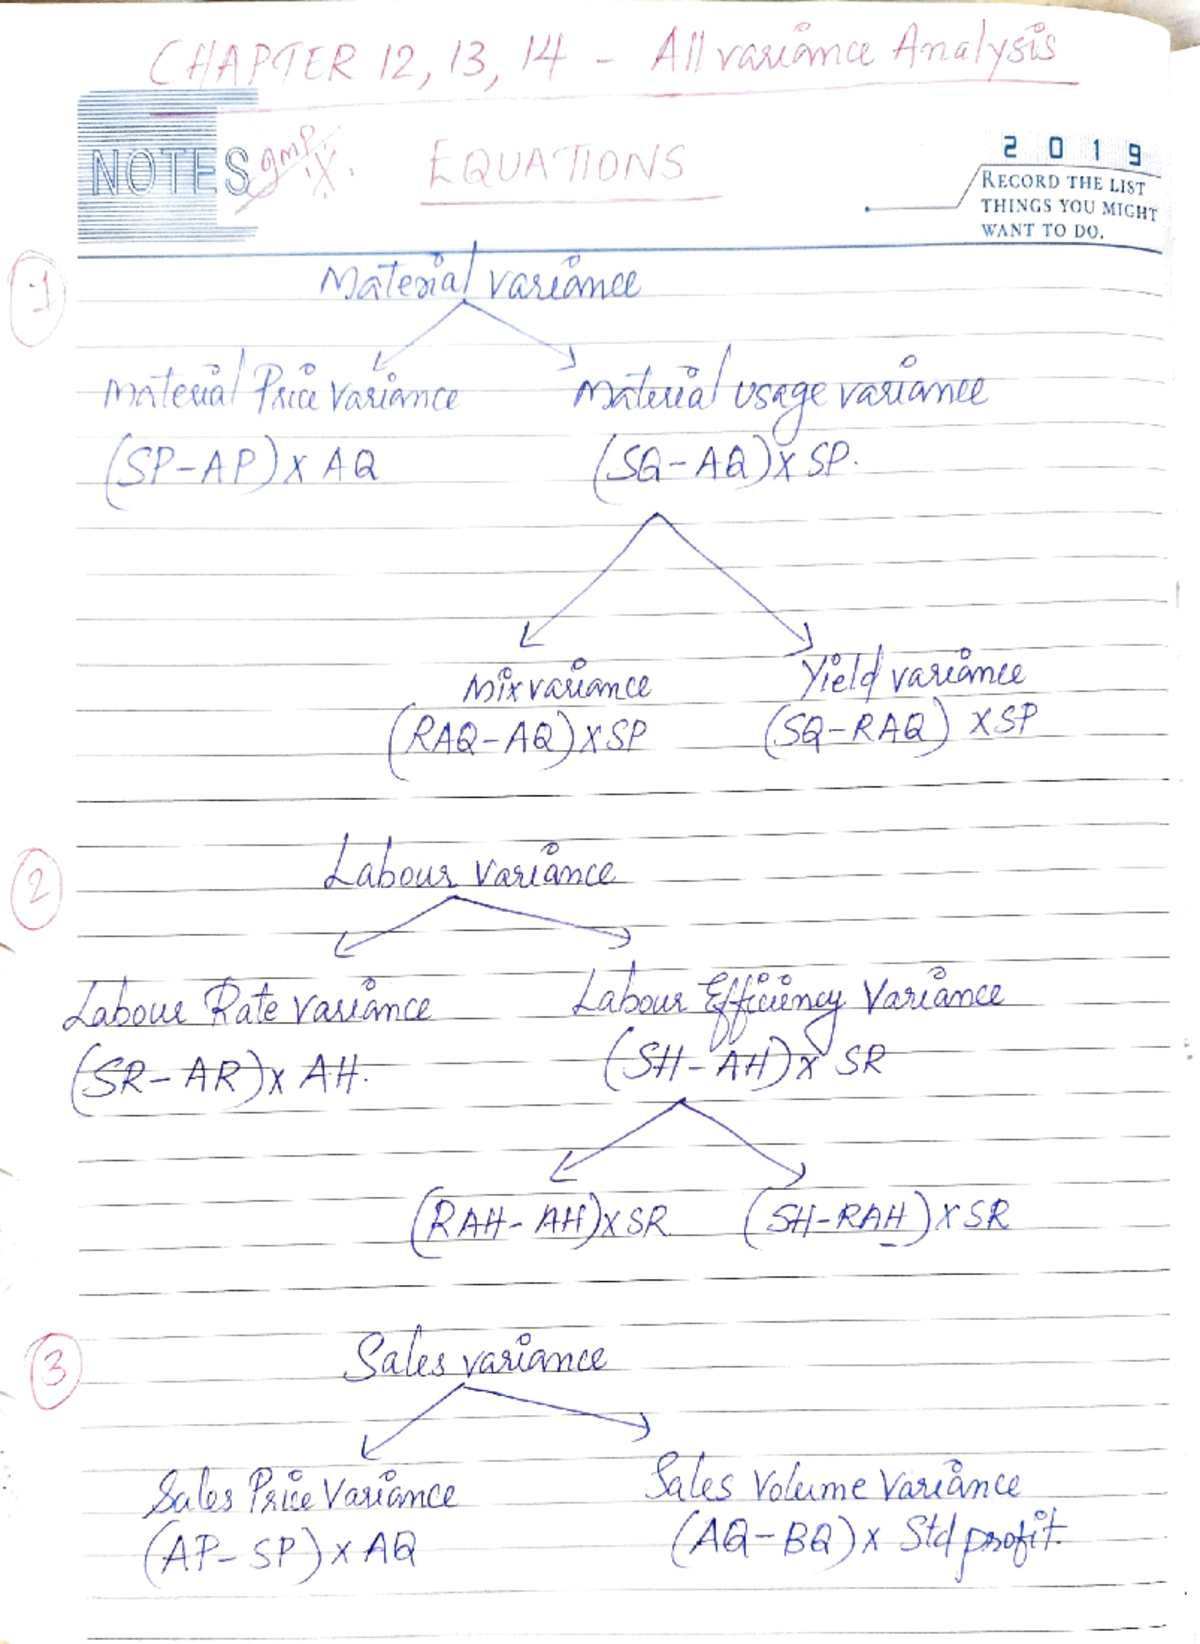 CHAPTER 12, 13, 14 - All variance Analysis
NOTES imp. EQUATIONS
2019
RECORD THE LIST
THINGS YOU MIGHT
WANT TO DO.
1
Material variance
Material Price Variance Material usage variance
(SP-AP) x AQ (SQ-AQ) x SP.
Mix variance Yield variance
(RAQ-AQ) x SP (SQ-RAQ) x SP
2
Labour variance
Labour Rate variance Labour Efficiency Variance
(SR-AR) x AH. (SH-AH) x SR
(RAH-AH) x SR (SH-RAH) x SR
3
Sales variance
Sales Price Variance Sales Volume Variance
(AP-SP) x AQ (AQ-BQ) x Std profit.